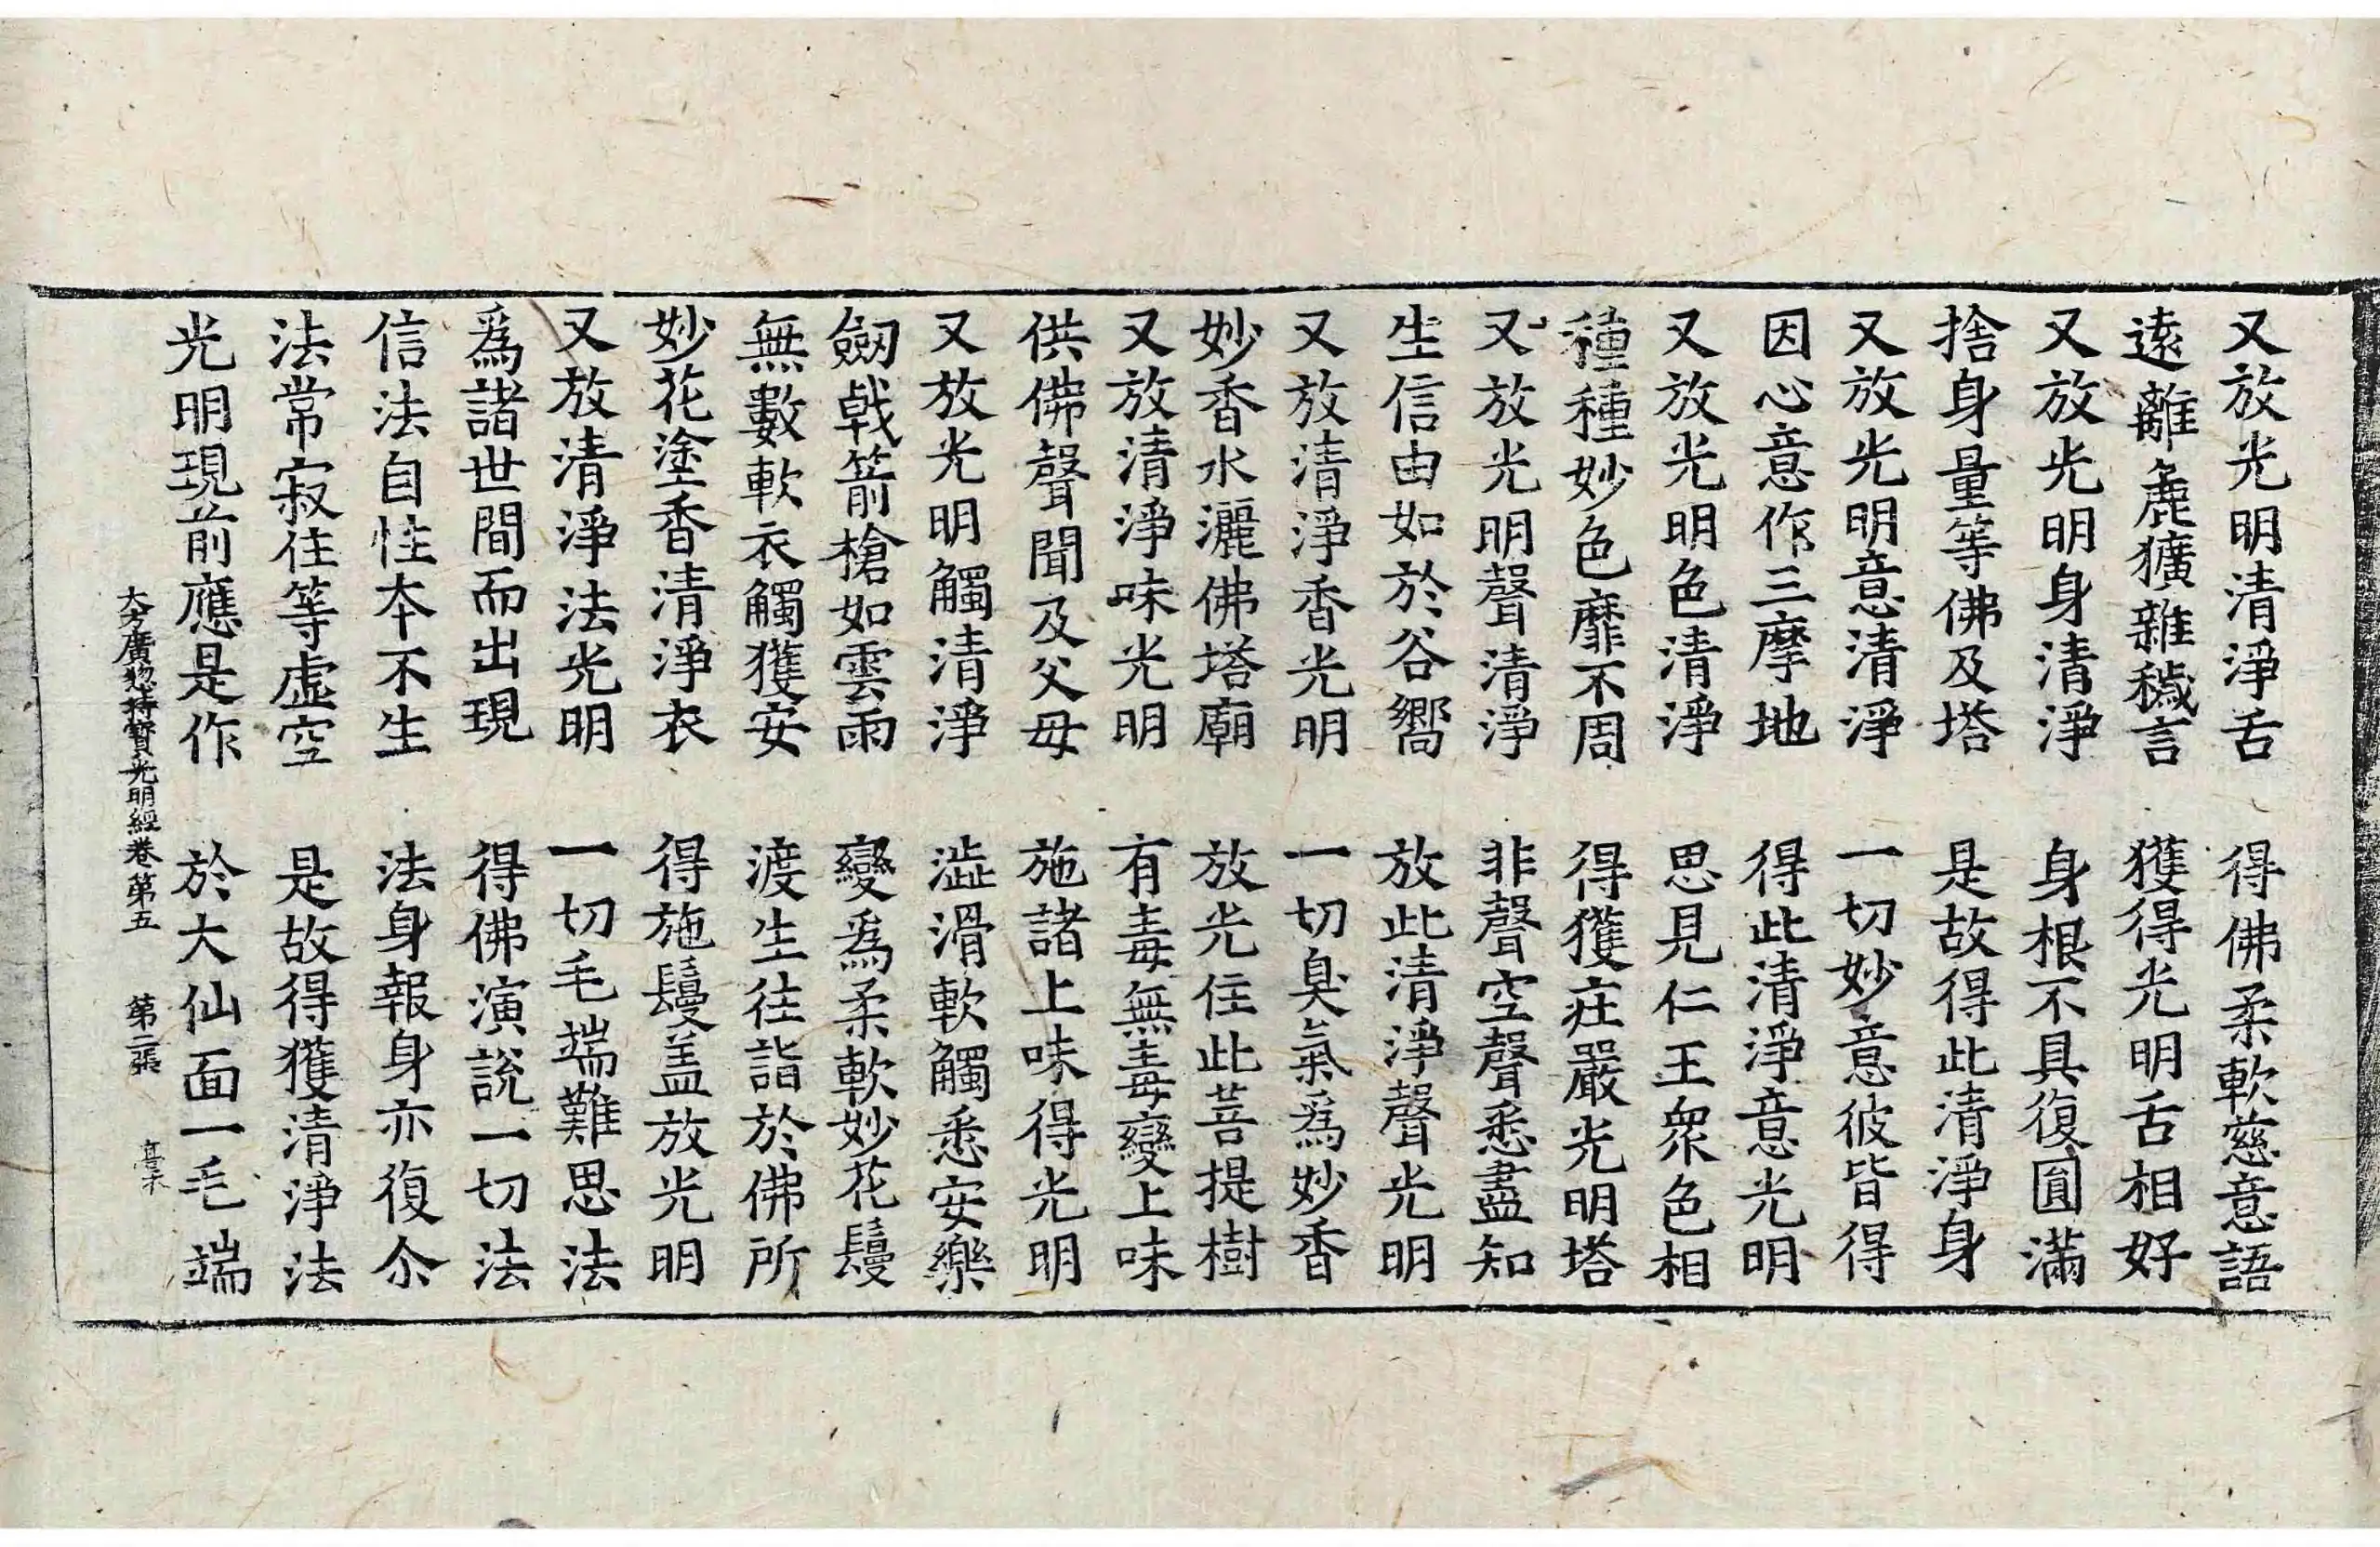 又放光明清淨舌　得佛柔軟慈意語
遠離麁獷雜穢言　獲得光明舌相好
又放光明身清淨　身根不具復圓滿
捨身量等佛及塔　是故得此清淨身
又放光明意清淨　一切妙意彼皆得
因心意作三摩地　得此清淨意光明
又放光明色清淨　思見仁王眾色相
種種妙色靡不周　得獲庄嚴光明塔
又放光明聲清淨　非聲空聲悉盡知
生信由如於谷嚮　放此清淨聲光明
又放清淨香光明　一切臭氣爲妙香
妙香水灑佛塔廟　放光住此菩提樹
又放清淨味光明　有毒無毒變上味
供佛聲聞及父母　施諸上味得光明
又放光明觸清淨　澁滑軟觸悉安樂
劒戟箭槍如雲雨　變爲柔軟妙花鬘
無數軟衣觸獲安　渡生往詣於佛所
妙花塗香清淨衣　得施鬘盖放光明
又放清淨法光明　一切毛端難思法
爲諸世間而出現　得佛演說一切法
信法自性本不生　法身報身亦復尒
法常寂住等虛空　是故得獲清淨法
光明現前應是作　於大仙面一毛端
大方廣惣持寶光明經卷第五　第二張